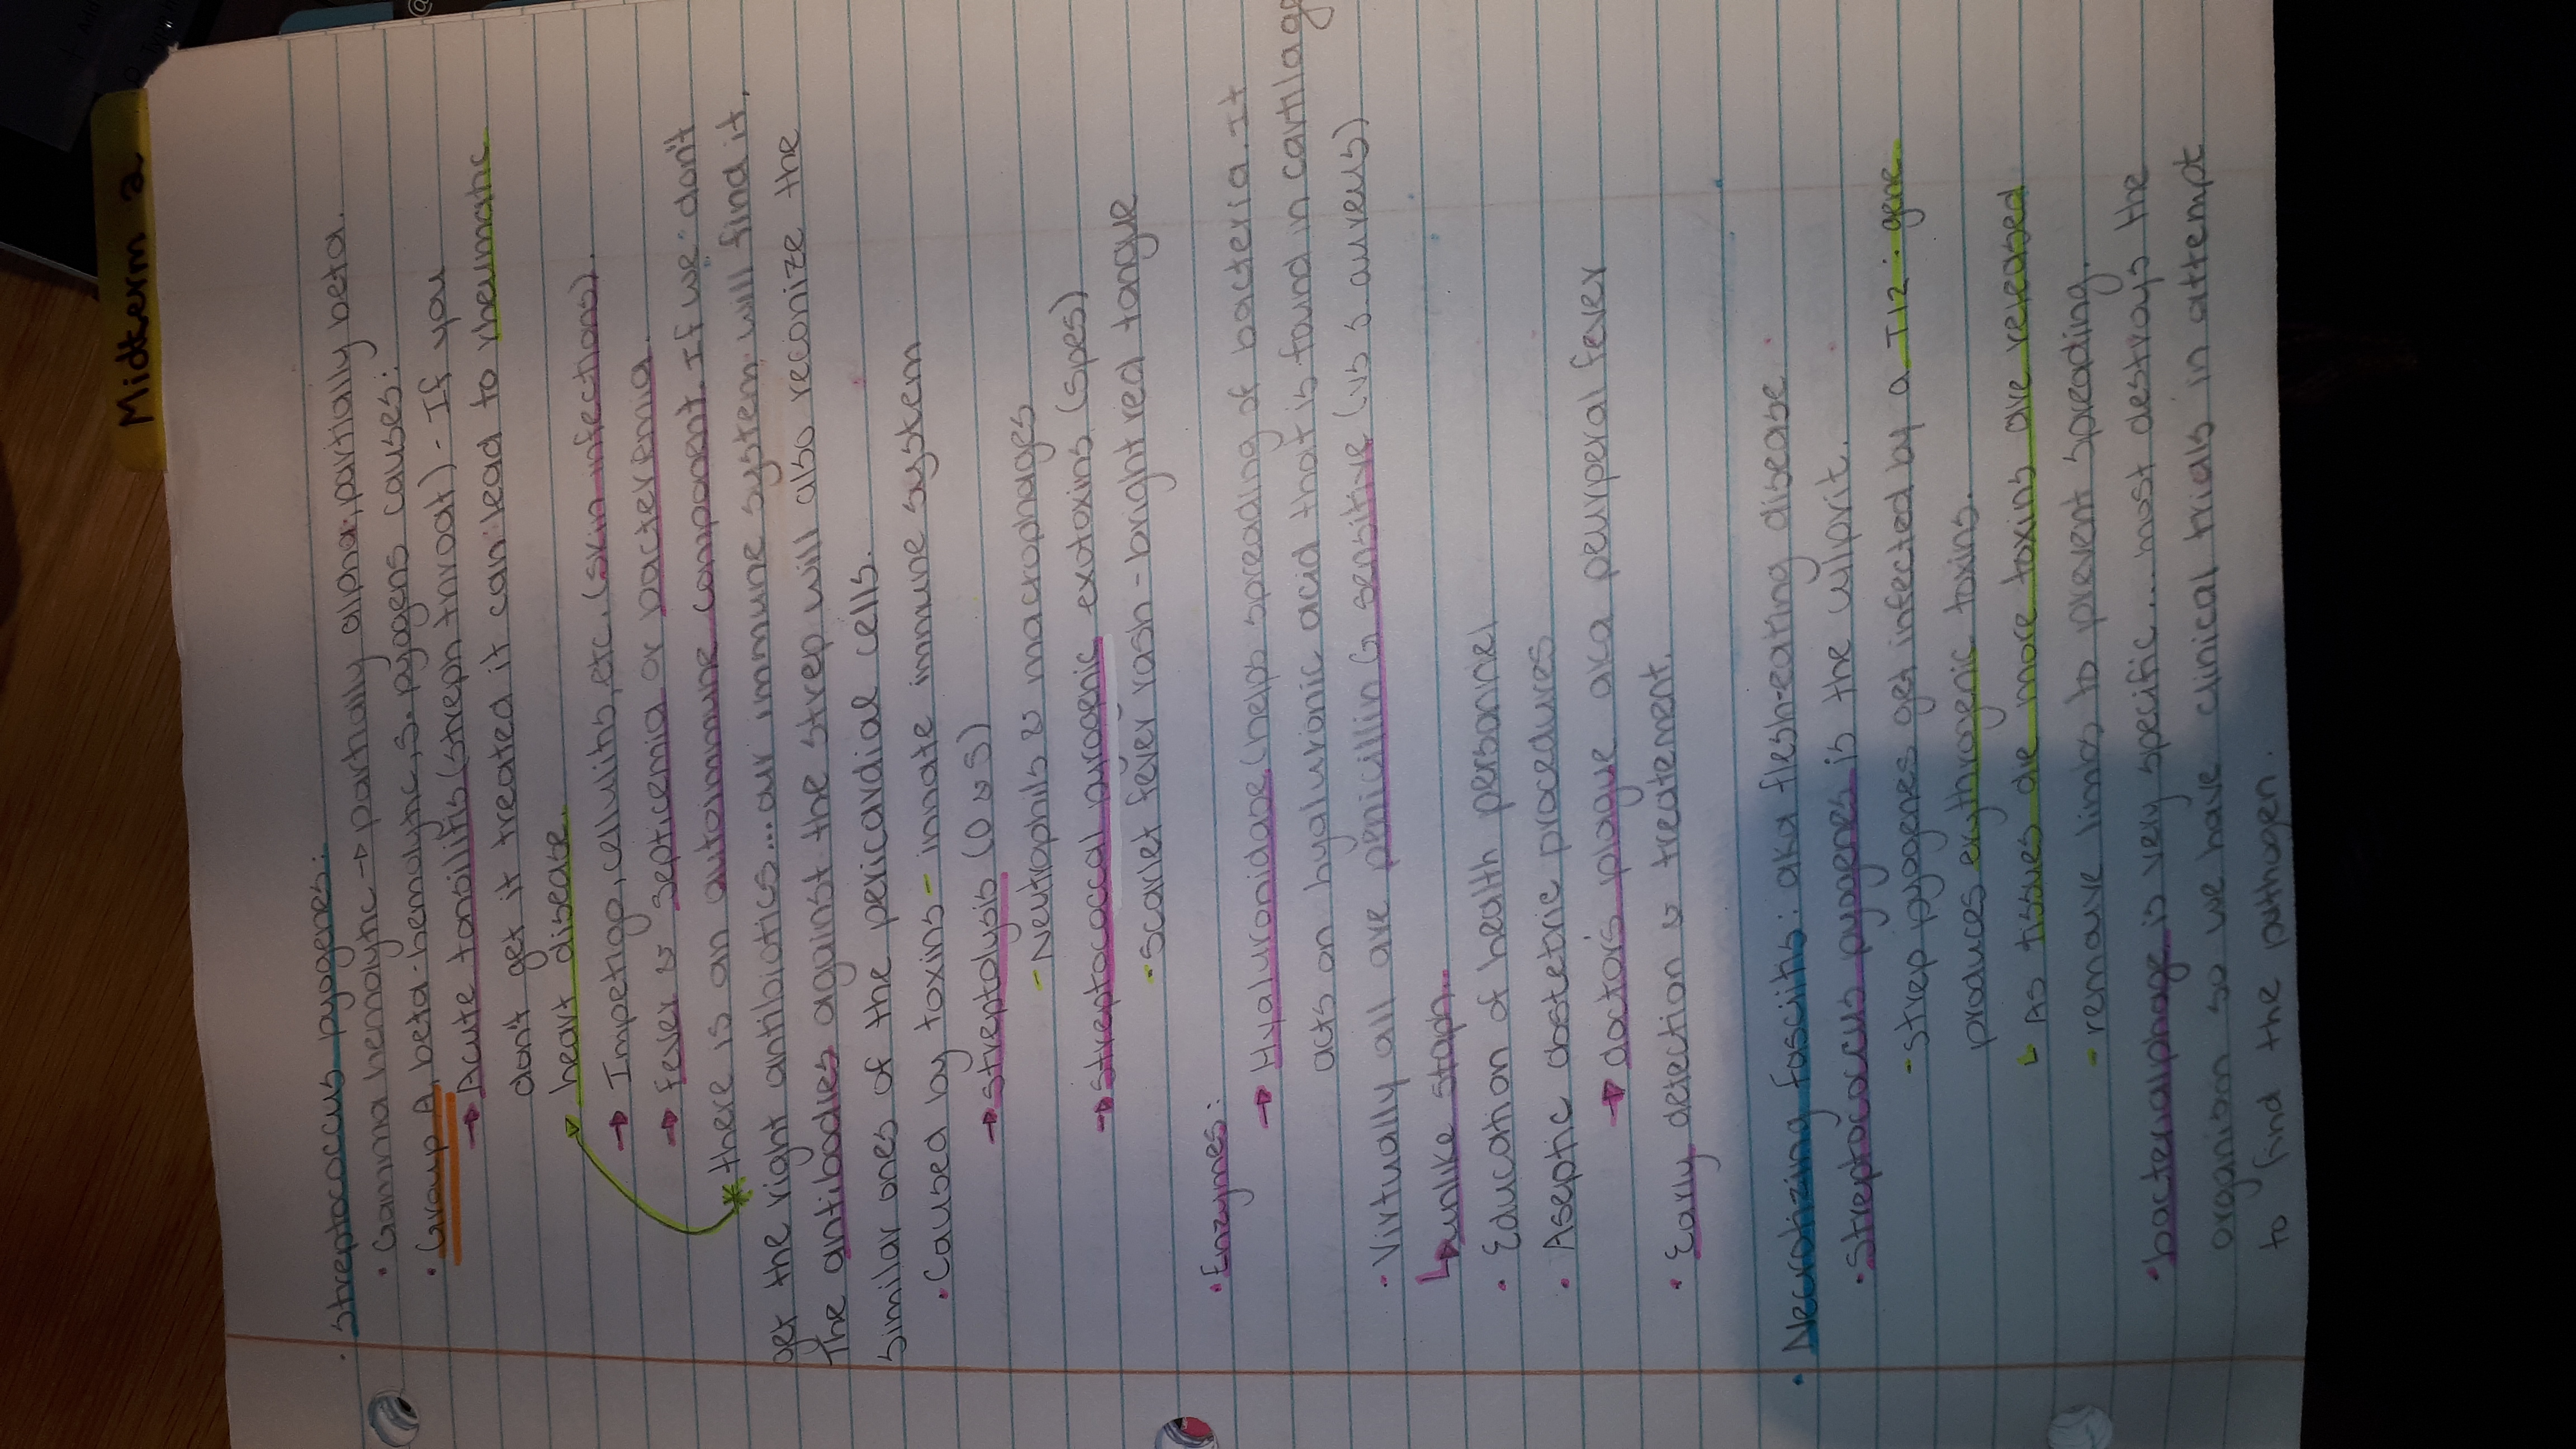 Midterm 2
· Streptococcus pyogenes:
· Gamma hemolytic → partially alpha, partially beta.
· Group A, beta-hemolytic, S. pyogens causes:
→ Acute tonsillitis (streph throat) - If you
don't get it treated it can lead to rheumatic
heart disease.
→ Impetigo, cellulitis, etc. (skin infections).
→ Fever & septicemia or bacteremia.
* there is an autoimmune component. If we don't
get the right antibiotics... our immune system will find it.
The antibodies against the strep will also reconize the
similar ones of the pericardial cells.
· Caused by toxins - innate immune system
→ Streptolysis (O & S)
- Neutrophils & macrophages
→ Streptococcal pyrogenic exotoxins (spes)
- Scarlet fever rash - bright red tongue
· Enzymes:
→ Hyaluronidase (helps spreading of bacteria. It
acts on hyaluronic acid that is found in cartilage
· Virtually all are penicillin G sensitive (vs s. aureus)
↳ unlike staph.
· Education of health personnel
· Aseptic obstetric procedures
→ doctors plague aka peurperal fever
· Early detection & treatement.
· Necrotizing fasciitis: aka flesh-eating disease.
· Streptococcus pyogenes is the culprit.
- Strep pyogenes get infected by a T12: gene
produces erythrogenic toxins.
↳ As tissues die more toxins are released
- remove limbs to prevent spreading.
· bacterialphage is very specific... must destroys the
organism so we have clinical trials in attempt
to find the pathogen.